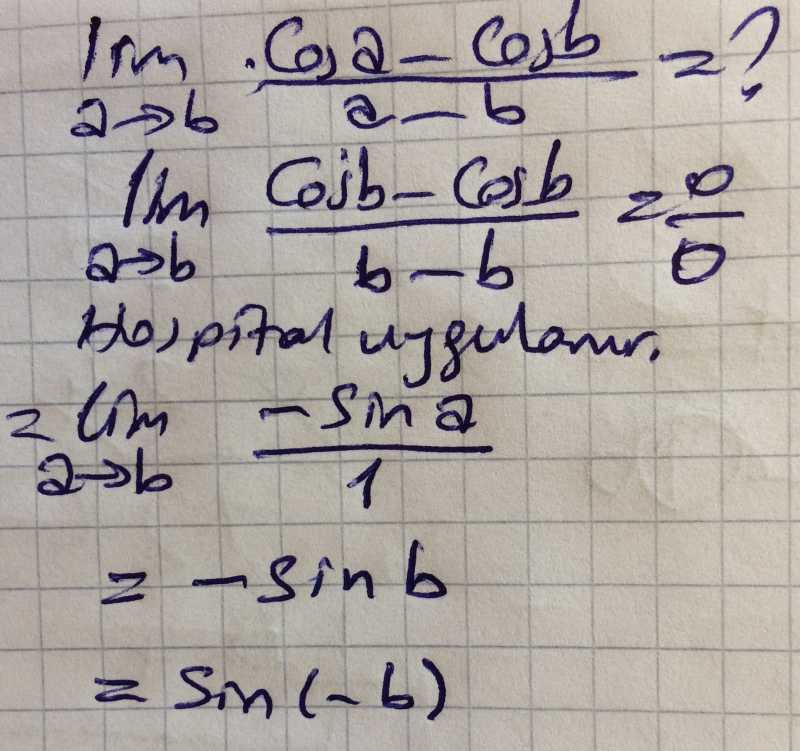 lim cosa - cosb / a - b = ?
a→b
lim cosb - cosb / b - b = 0/0
a→b
Hospital uygulanır.
= lim -sin a / 1
a→b
= -sin b
= sin(-b)